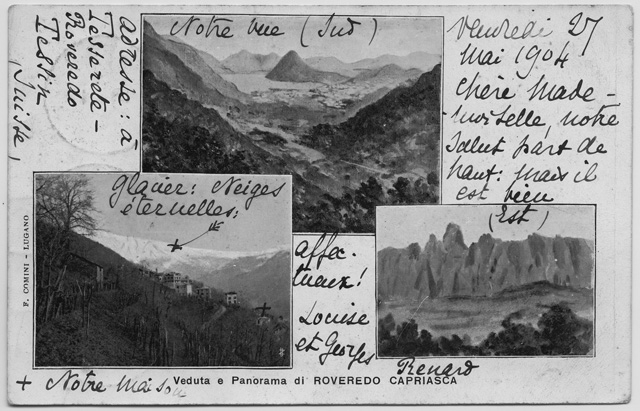 Adresse: à
Tesserete -
Roveredo
Tessin,
Suisse,
Notre vue (Sud)
Vendredi 27
Mai 1904
Chère Made-
moiselle, notre
salut part de
haut: mais il
est bien
affec-
tueux!
Louise
et Georges
Renard
Glacier: Neiges
éternelles:
(Est)
+ Notre maison
F. COMINI - LUGANO
Veduta e Panorama di ROVEREDO CAPRIASCA